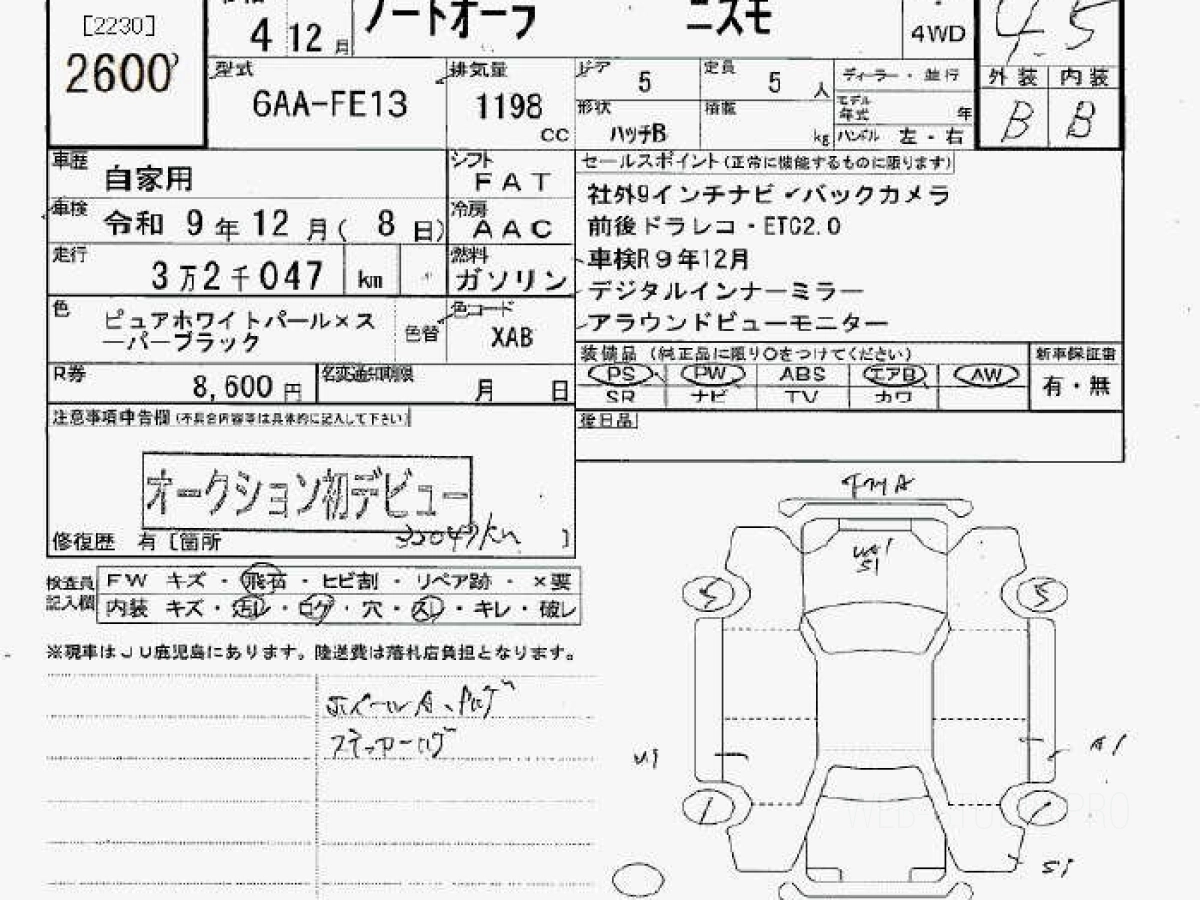 [2230]
2600
4 12 月
ノートオーラ ニスモ
4WD
4.5
型式
6AA-FE13
排気量
1198
cc
ドア 5
定員 5 人
ディーラー・並行
モデル年式 年
形状
ハッチB
積載
kg
ハンドル 左・右
外装 内装
B B
車歴
自家用
シフト
FAT
車検
令和 9年12月( 8日)
冷房
AAC
走行
3万2千047 km
燃料
ガソリン
色
ピュアホワイトパール×ス
ーパーブラック
色替
色コード
XAB
R券
8,600円
名変通知期限
月 日
セールスポイント(正常に機能するものに限ります)
社外9インチナビ✓バックカメラ
前後ドラレコ・ETC2.0
車検R9年12月
デジタルインナーミラー
アラウンドビューモニター
装備品 (純正品に限り○をつけてください)
新車保証書
PS PW ABS エアB AW
有・無
SR ナビ TV カワ
後日品
注意事項申告欄(不具合内容等は具体的に記入して下さい)
オークション初デビュー
32047km
修復歴 有〔箇所 〕
検査員
記入欄
FW キズ・飛石・ヒビ割・リペア跡・×要
内装 キズ・汚レ・コゲ・穴・スレ・キレ・破レ
※現車はJU鹿児島にあります。陸送費は落札店負担となります。
ホイールA、
S1
5 5
U1
A1
S1